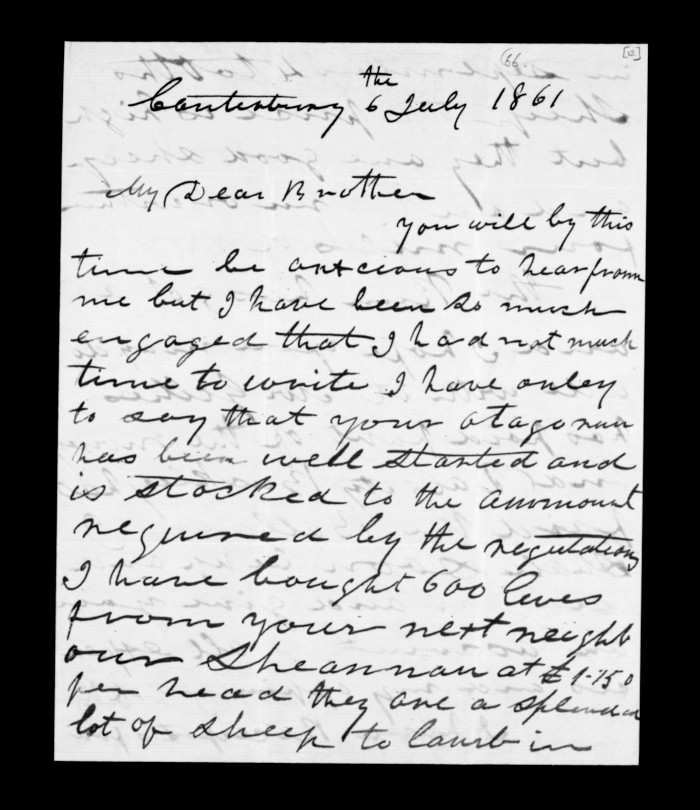 66.
[12]
the
Canterbury 6 July 1861
My Dear Brother
you will by this
time be antcious to hear from
me but I have been so much
engaged that I had not much
time to write I have onley
to say that your otago run
has been well started and
is stocked to the ammount
required by the regulations
I have bought 600 Ewes
from your next neighb
our Sheannan at £1-15 0
per head they are a splendid
lot of sheep to lamb in